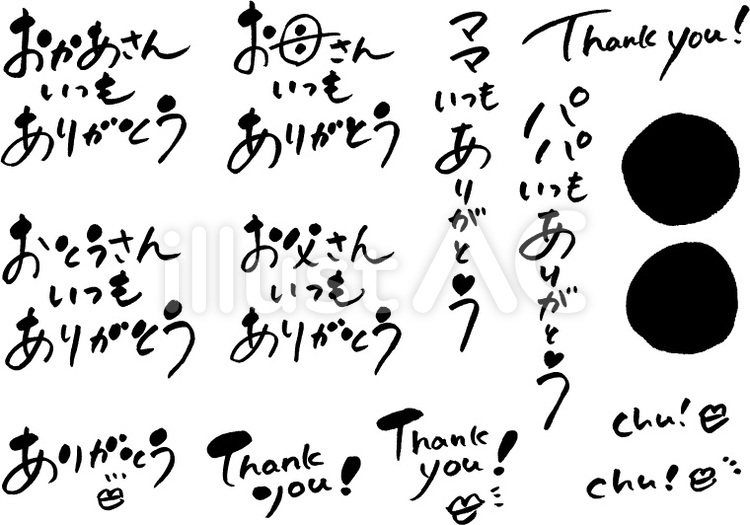 おかあさん
いつも
ありがとう
お母さん
いつも
ありがとう
ママ
いつも
ありがとう
パパ
いつも
ありがとう
Thank you!
おとうさん
いつも
ありがとう
お父さん
いつも
ありがとう
illust AC
ありがとう
Thank
you!
Thank
you!
chu!
chu!